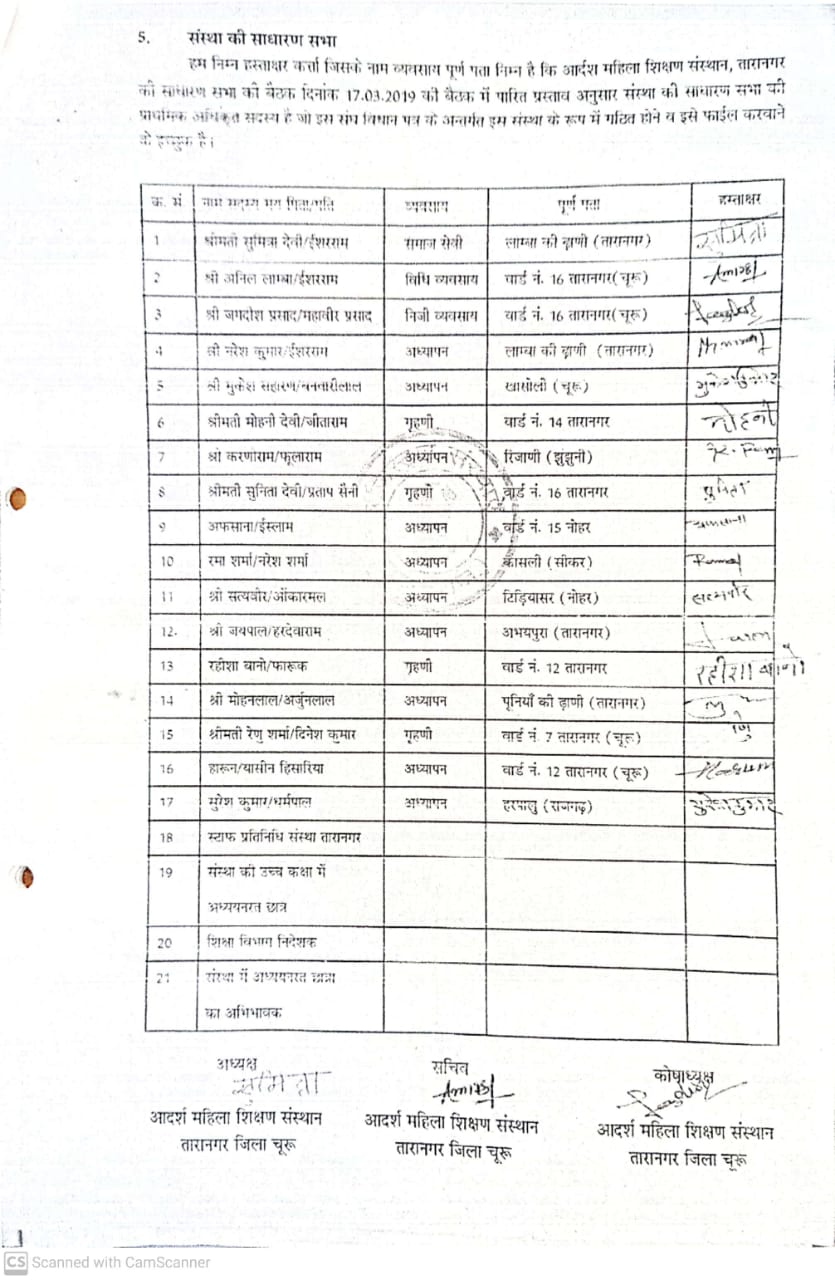 5. संस्था की साधारण सभा
हम निम्न हस्ताक्षर कर्ता जिसके नाम व्यवसाय पूर्ण पता निम्न है कि आर्दश महिला शिक्षण संस्थान, तारानगर
की साधारण सभा की बैठक दिनांक 17.03.2019 की बैठक में पारित प्रस्ताव अनुसार संस्था की साधारण सभा की
प्राथमिक अधिकृत सदस्य है जो इस संघ विधान पत्र के अन्तर्गत इस संस्था के रूप में गठित होने व इसे फाईल करवाने
के इच्छुक है।
क. सं. नाम सदस्य मय पिता/पति व्यवसाय पूर्ण पता हस्ताक्षर
1 श्रीमती सुमित्रा देवी/ईशरराम समाज सेवी लाम्बा की ढ़ाणी (तारानगर) सुमित्रा
2 श्री अनिल लाम्बा/ईशरराम विधि व्यवसाय वार्ड नं. 16 तारानगर(चूरू)
3 श्री जगदीश प्रसाद/महावीर प्रसाद निजी व्यवसाय वार्ड नं. 16 तारानगर(चूरू)
4 श्री नरेश कुमार/ईशरराम अध्यापन लाम्बा की ढ़ाणी (तारानगर)
5 श्री मुकेश सहारण/बनवारीलाल अध्यापन खासोली (चूरू)
6 श्रीमती मोहनी देवी/जीताराम गृहणी वार्ड नं. 14 तारानगर मोहनी
7 श्री करणीराम/फूलाराम अध्यापन रिजाणी (झुंझुनी)
8 श्रीमती सुनिता देवी/प्रताप सैनी गृहणी वार्ड नं. 16 तारानगर सुनिता
9 अफसाना/ईस्लाम अध्यापन वार्ड नं. 15 नोहर
10 रमा शर्मा/नरेश शर्मा अध्यापन कांसली (सीकर)
11 श्री सत्यवीर/ओंकारमल अध्यापन टिड़ियासर (नोहर) सत्यवीर
12. श्री जयपाल/हरदेवाराम अध्यापन अभयपुरा (तारानगर)
13 रहीशा बानो/फारूक गृहणी वार्ड नं. 12 तारानगर रहीशा बानो
14 श्री मोहनलाल/अर्जुनलाल अध्यापन पूनियाँ की ढ़ाणी (तारानगर)
15 श्रीमती रेणु शर्मा/दिनेश कुमार गृहणी वार्ड नं. 7 तारानगर (चूरू) रेणु
16 हारून/यासीन हिसारिया अध्यापन वार्ड नं. 12 तारानगर (चूरू)
17 सुरेश कुमार/धर्मपाल अध्यापन हरपालु (राजगढ़) सुरेश कुमार
18 स्टाफ प्रतिनिधि संस्था तारानगर
19 संस्था की उच्च कक्षा में
अध्ययनरत छात्र
20 शिक्षा विभाग निदेशक
21 संस्था में अध्ययनरत छात्रा
का अभिभावक
अध्यक्ष सचिव कोषाध्यक्ष
सुमित्रा
आदर्श महिला शिक्षण संस्थान आदर्श महिला शिक्षण संस्थान आदर्श महिला शिक्षण संस्थान
तारानगर जिला चूरू तारानगर जिला चूरू तारानगर जिला चूरू
CS Scanned with CamScanner